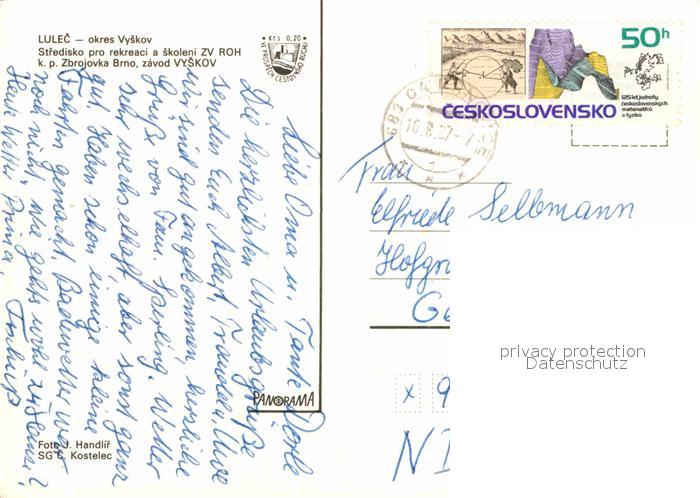 LULEČ – okres Vyškov
Středisko pro rekreaci a školení ZV ROH
k. p. Zbrojovka Brno, závod VYŠKOV
Kčs 0,20
VE PROSPĚCH CESTOVNÍHO RUCHU
50h
ČESKOSLOVENSKO
125 let jednoty
československých
matematiků
a fyziků
683 04
10.8.87-7
Liebe Oma u. Tante
Die herzlichsten Urlaubsgrüße
senden Euch Albert, Traudel u. Uwe
wir sind gut angekommen, herzliche
Grüße von Fam. Sperling. Wetter
sehr wechselhaft, aber sonst ganz
gut. Haben schon einige kleine
Fahrten gemacht, Badewetter war
noch nicht. Wie gehts wohl zuhause?
Heute Wetter Prima.
Frau
Elfriede Sellmann
Hofgr
Ge
x 9
N
PANORAMA
Foto J. Handlíř
SG C. Kostelec
privacy protection
Datenschutz